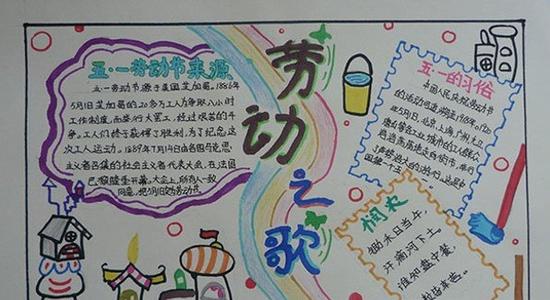 五·一劳动节来源
五·一劳动节源于美国芝加哥。1886年
5月1日芝加哥的20多万工人为争取八小时
工作制而举行大罢工,经过艰苦的斗
争。工人们终于获得了胜利,为了纪念这
次工人运动。1889年7月14日由各国马克思
主义者召集的社会主义者代表大会,在法国
巴黎隆重开幕,大会上,所有人一致
同意,把5月1日定为劳动节
劳动之歌
五·一的习俗
中国人民庆祝劳动节
的活动可追溯至1918年。
年5月1日,北京、上海、广州、九江
唐山等各工业城市的工人群众
悯农
锄禾日当午,
汗滴河下土
谁知盘中餐,